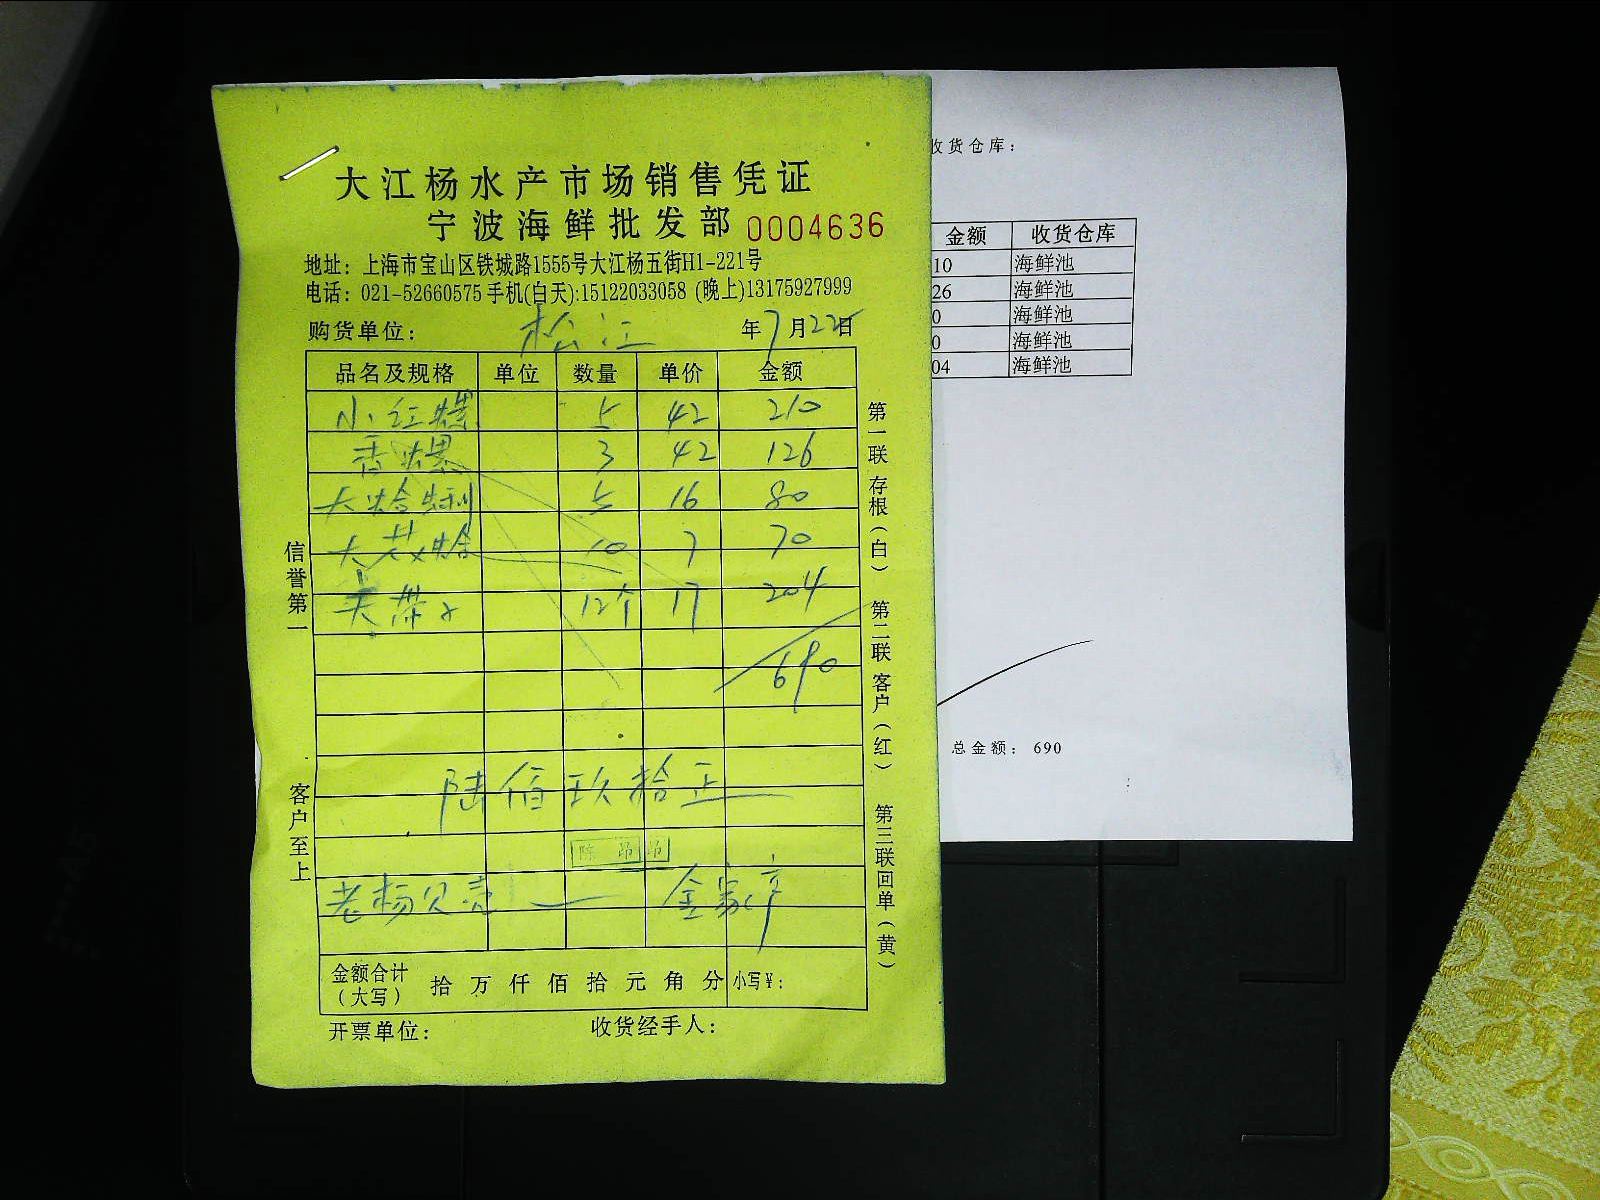 大江杨水产市场销售凭证
宁波海鲜批发部 0004636
地址：上海市宝山区铁城路1555号大江杨五街H1-221号
电话：021-52660575 手机(白天):15122033058 (晚上)13175927999
购货单位： 松江 年7月22日
品名及规格 单位 数量 单价 金额
小红螺 5 42 210
香螺 3 42 126
大蛤蜊 5 16 80
大花蛤 10 7 70
大带子 12个 17 204
690
陆佰玖拾正
老杨贝壳 — 金家
金额合计（大写） 拾 万 仟 佰 拾 元 角 分 小写￥:
开票单位： 收货经手人：
信誉第一
客户至上
第一联 存根（白） 第二联 客户（红） 第三联 回单（黄）
收货仓库：
金额 收货仓库
10 海鲜池
26 海鲜池
0 海鲜池
0 海鲜池
04 海鲜池
总金额： 690